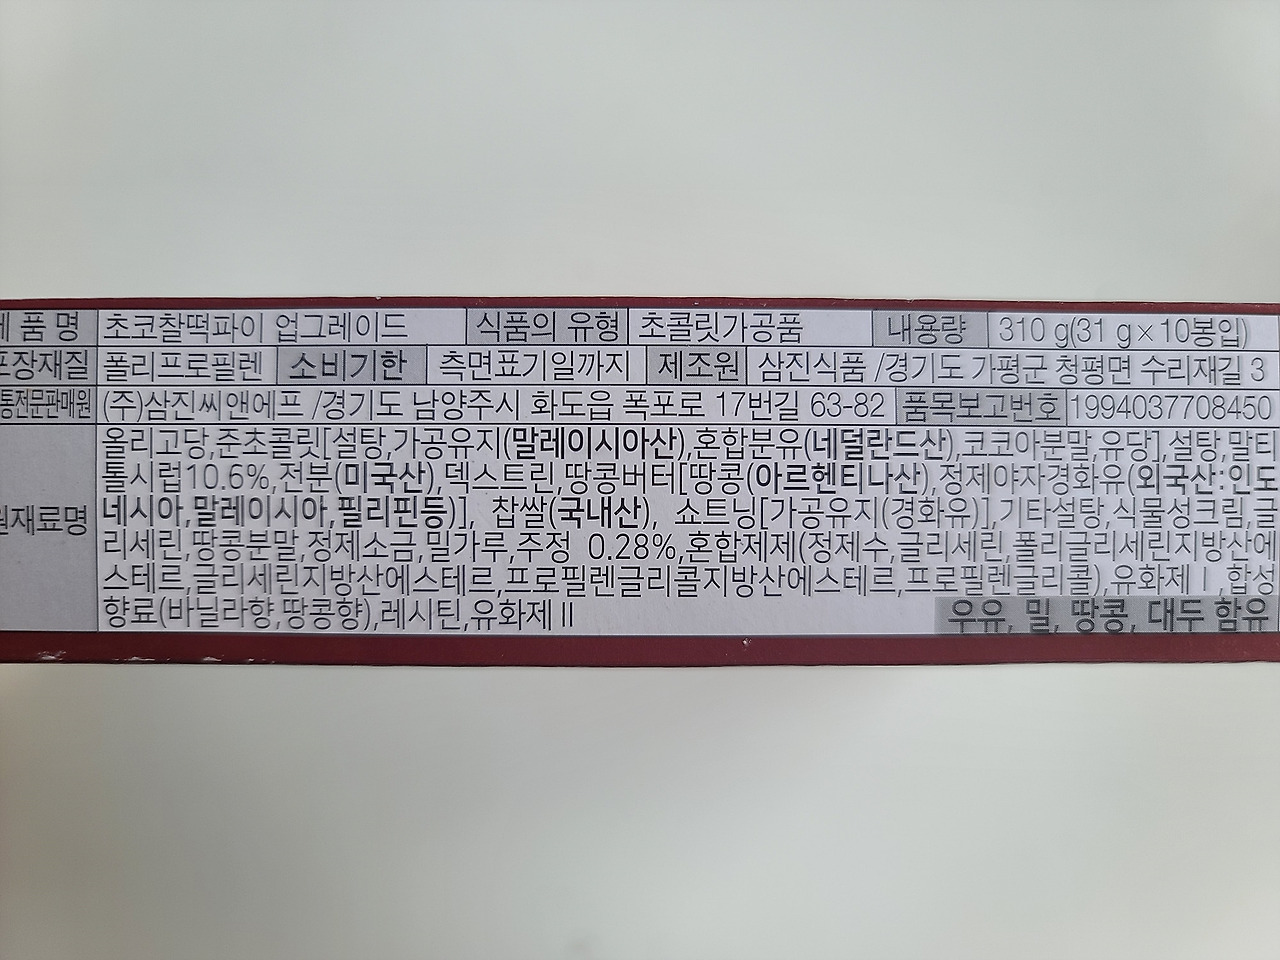 제 품 명 초코찰떡파이 업그레이드 식품의 유형 초콜릿가공품 내용량 310 g(31 g×10봉입)
포장재질 폴리프로필렌 소비기한 측면표기일까지 제조원 삼진식품 /경기도 가평군 청평면 수리재길 3
통전문판매원 (주)삼진씨앤에프 /경기도 남양주시 화도읍 폭포로 17번길 63-82 품목보고번호 1994037708450
원재료명
올리고당,준초콜릿[설탕,가공유지(말레이시아산),혼합분유(네덜란드산),코코아분말,유당],설탕,말티
톨시럽10.6%,전분(미국산),덱스트린,땅콩버터[땅콩(아르헨티나산),정제야자경화유(외국산:인도
네시아,말레이시아,필리핀등)], 찹쌀(국내산), 쇼트닝[가공유지(경화유)],기타설탕,식물성크림,글
리세린,땅콩분말,정제소금,밀가루,주정 0.28%,혼합제제(정제수,글리세린,폴리글리세린지방산에
스테르,글리세린지방산에스테르,프로필렌글리콜지방산에스테르,프로필렌글리콜),유화제Ⅰ,합성
향료(바닐라향,땅콩향),레시틴,유화제Ⅱ
우유, 밀, 땅콩, 대두 함유